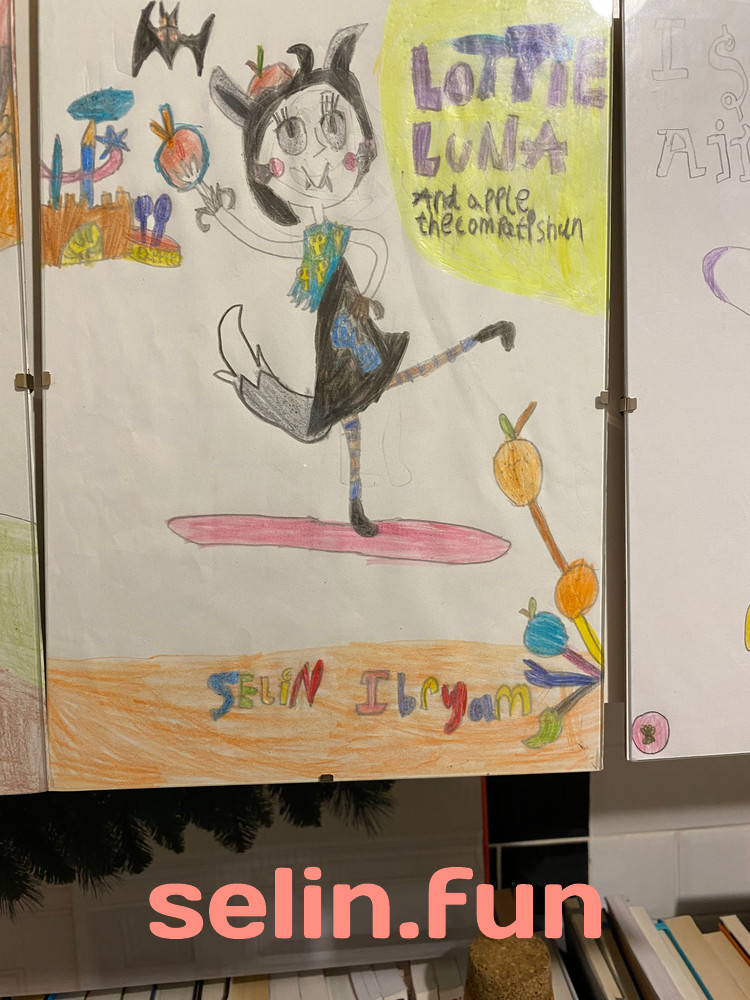 LOTTIE
LUNA
And apple
thecompatishun
I S
Aij
SELiN Ibryam
selin.fun